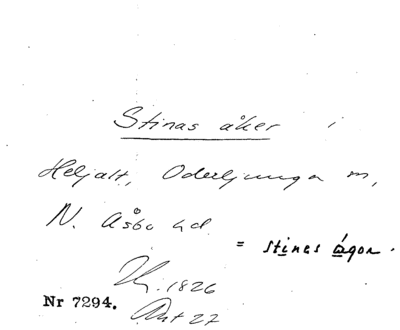 Stinas åker i
Heljalt, Oderljunga sn,
N. Åsbo hd.
= stines ågor.
1826
Nr 7294. Akt 27